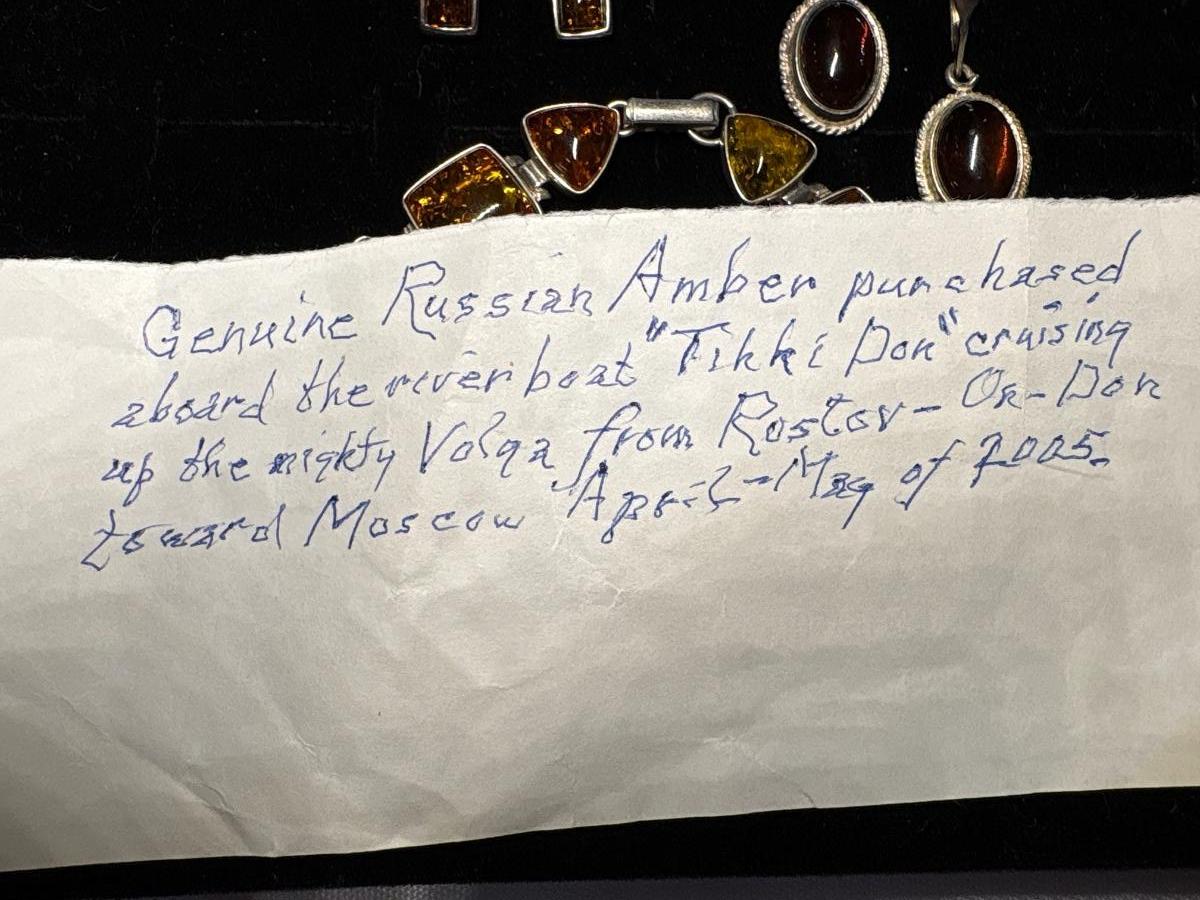 Genuine Russian Amber purchased
aboard the riverboat "Tikki Don" cruising
up the mighty Volga from Rostov-On-Don
toward Moscow April-May of 2005.